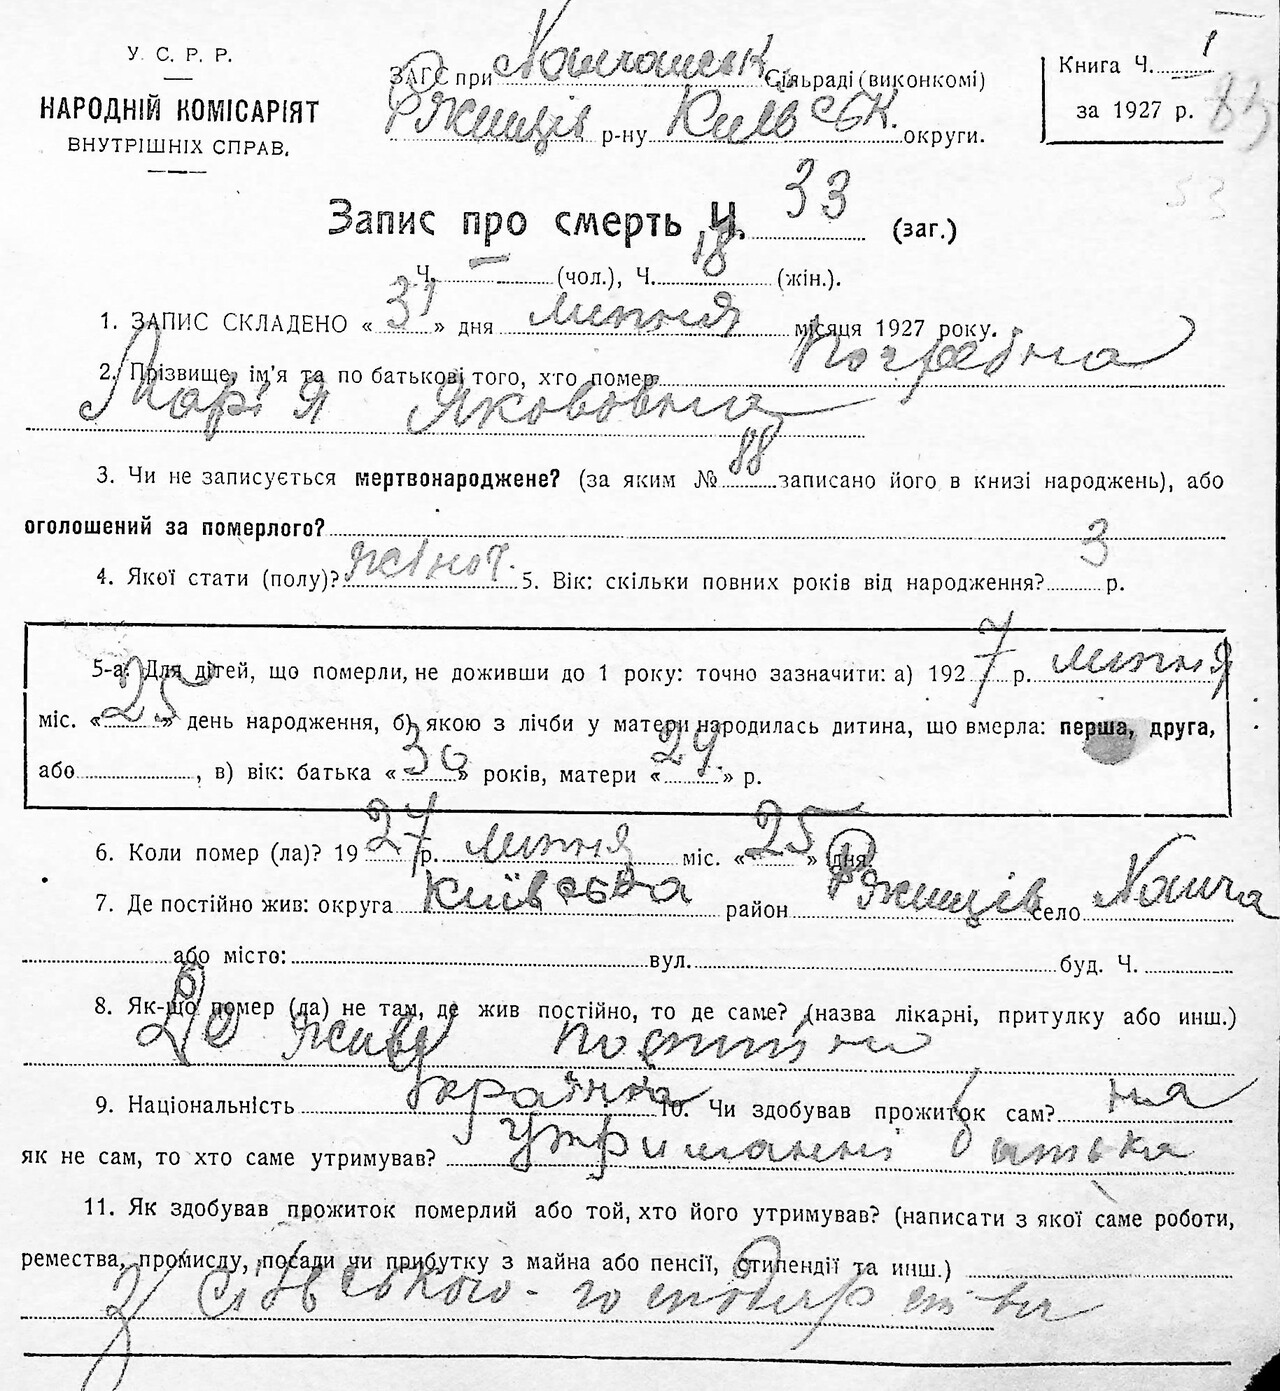 У. С. Р. Р.
НАРОДНІЙ КОМІСАРІЯТ
ВНУТРІШНІХ СПРАВ.
ЗАГС при Сільраді (виконкомі)
Ржищів р-ну Київськ. округи.
Книга Ч. 1
за 1927 р.
Запис про смерть Ч. 33 (заг.)
Ч. — (чол.), Ч. 18 (жін.).
1. ЗАПИС СКЛАДЕНО « 31 » дня липня місяця 1927 року.
2. Прізвище, ім'я та по батькові того, хто помер Погребна
Марія Яковівна
3. Чи не записується мертвонароджене? (за яким № 88 записано його в книзі народжень), або
оголошений за померлого?
4. Якої стати (полу)? жіноч. 5. Вік: скільки повних років від народження? 3 р.
5-а. Для дітей, що померли, не доживши до 1 року: точно зазначити: а) 1927 р. липня
міс. « 25 » день народження, б) якою з лічби у матери народилась дитина, що вмерла: перша, друга,
або , в) вік: батька « 36 » років, матери « 29 » р.
6. Коли помер (ла)? 1927 р. липня міс. « 25 » дня.
7. Де постійно жив: округа Київська район Ржищів село
або місто: вул. буд. Ч.
8. Як-що помер (ла) не там, де жив постійно, то де саме? (назва лікарні, притулку або инш.)
Де живе постійно
9. Національність Українка 10. Чи здобував прожиток сам? на
як не сам, то хто саме утримував? утриманні батька
11. Як здобував прожиток померлий або той, хто його утримував? (написати з якої саме роботи,
ремества, промислу, посади чи прибутку з майна або пенсії, стипендії та инш.)
З сільського-господарства